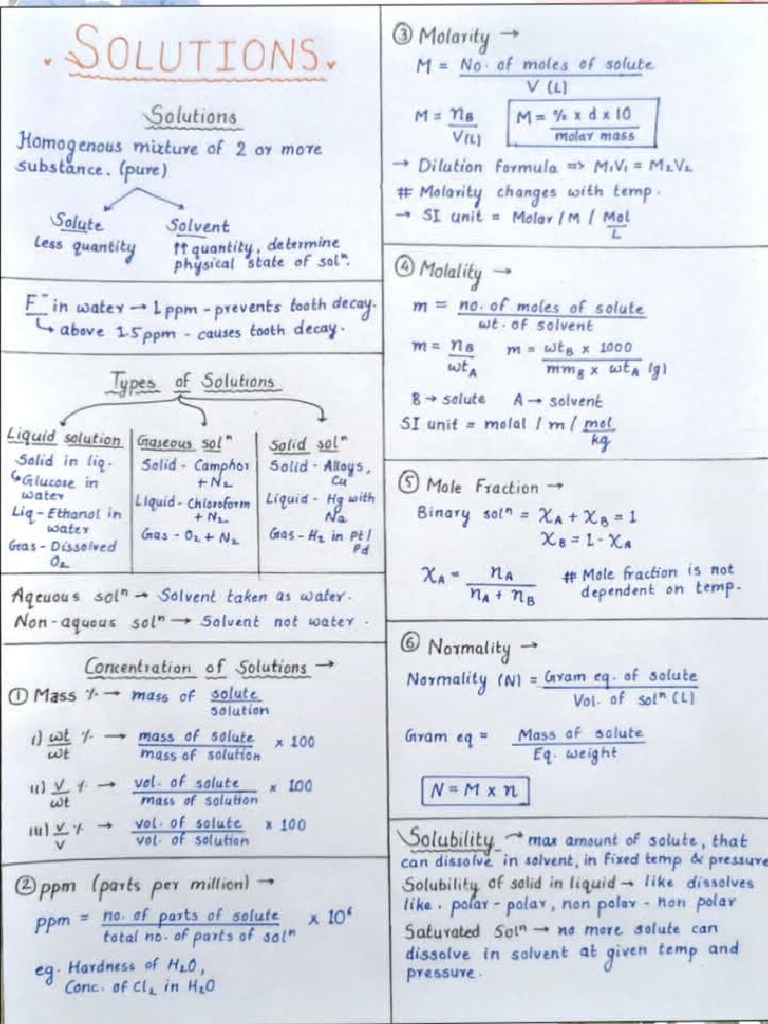 SOLUTIONS
Solutions
Homogenous mixture of 2 or more
substance. (pure)
Solute
Less quantity
Solvent
↑↑ quantity, determine
physical state of solⁿ.
F⁻ in water → 1 ppm - prevents tooth decay.
↳ above 1.5 ppm - causes tooth decay.
Types of Solutions
Liquid solution
Solid in liq.
↳ Glucose in
water
Liq - Ethanol in
water
Gas - Dissolved
O₂
Gaseous solⁿ
Solid - Camphor
+ N₂
Liquid - Chloroform
+ N₂
Gas - O₂ + N₂
Solid solⁿ
Solid - Alloys,
Cu
Liquid - Hg with
Na
Gas - H₂ in Pt/
Pd
Aqeuous solⁿ → Solvent taken as water.
Non-aquous solⁿ → Solvent not water.
Concentration of Solutions →
① Mass % → mass of solute/solution
i) wt/wt % → mass of solute/mass of solution × 100
ii) v/wt % → vol. of solute/mass of solution × 100
iii) v/v % → vol. of solute/vol. of solution × 100
② ppm (parts per million) →
ppm = no. of parts of solute/total no. of parts of solⁿ × 10⁶
eg. Hardness of H₂O,
Conc. of Cl₂ in H₂O
③ Molarity →
M = No. of moles of solute/V (L)
M = n_B/V(L) M = % x d x 10/molar mass
→ Dilution formula => M₁V₁ = M₂V₂
# Molarity changes with temp.
→ SI unit = Molar / M / Mol/L
④ Molality →
m = no. of moles of solute/wt. of solvent
m = n_B/wt_A m = wt_B x 1000/mm_B x wt_A (g)
B → solute A → solvent
SI unit = molal / m / mol/kg
⑤ Mole Fraction →
Binary solⁿ = χ_A + χ_B = 1
χ_B = 1 - χ_A
χ_A = n_A/n_A + n_B # Mole fraction is not
dependent on temp.
⑥ Normality →
Normality (N) = Gram eq. of solute/Vol. of solⁿ (L)
Gram eq = Mass of solute/Eq. weight
N = M x n
Solubility → max amount of solute, that
can dissolve in solvent, in fixed temp & pressure
Solubility of solid in liquid → like dissolves
like. polar - polar, non polar - non polar
Saturated Solⁿ → no more solute can
dissolve in solvent at given temp and
pressure.